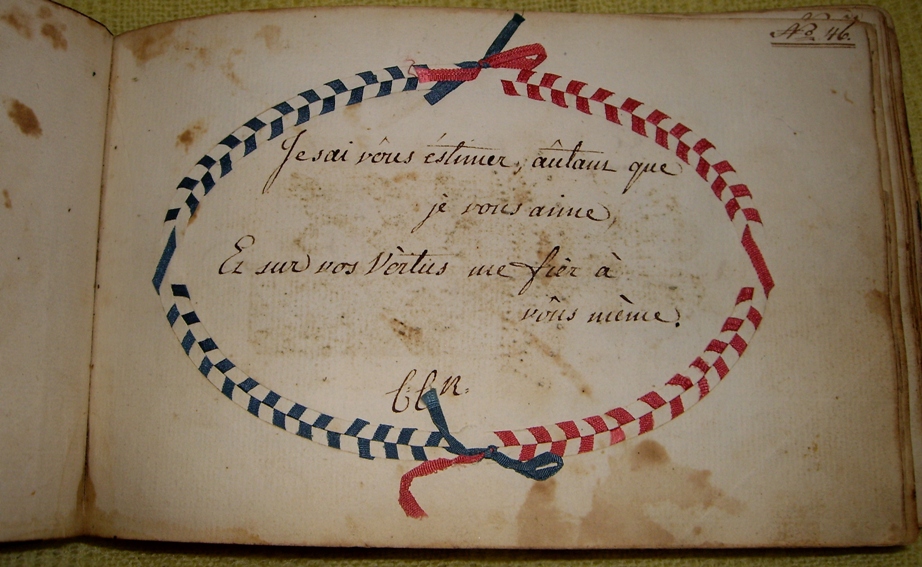 No. 46.
Je sai vôus éstimer, âutant que
je vous aime,
Et sur vos Vèrtus me fièr à
vôus mème.
CCR.